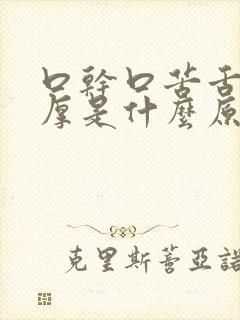 口幹口苦舌
厚是什麼原
克里斯蒂亞諾